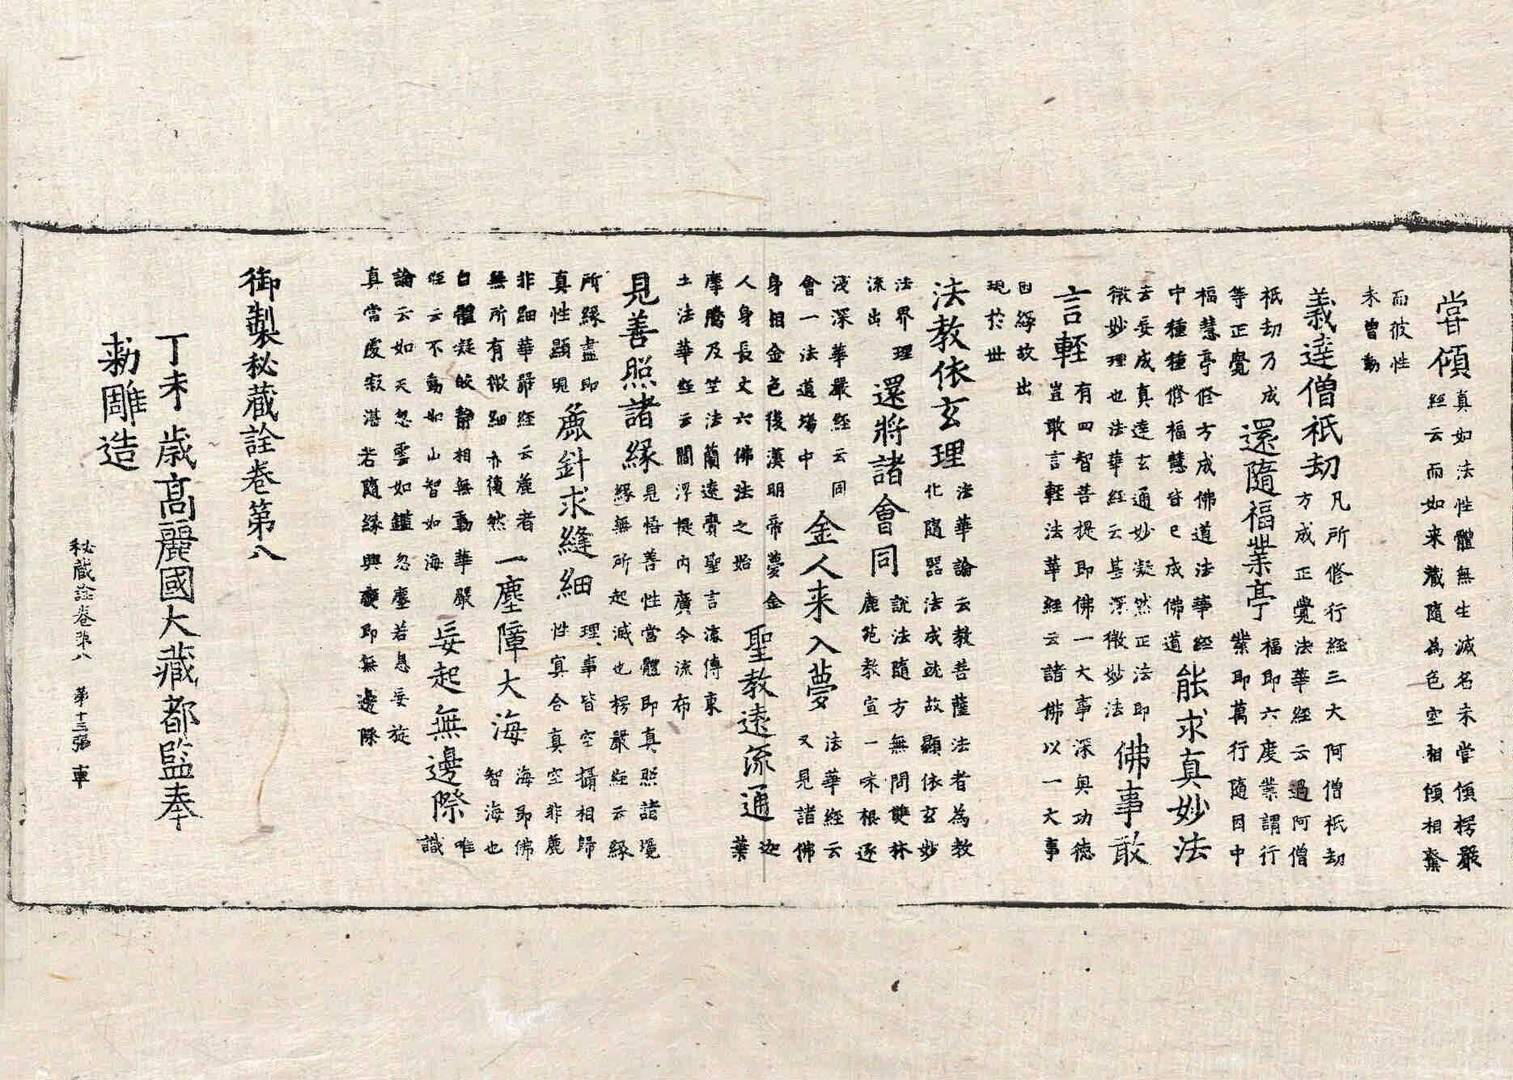 甞傾真如法性體無生滅名未甞傾楞嚴
經云而如来藏隨為色空相傾相奪
而彼性
未曾動
義達僧祇刼凡所修行経三大阿僧祇刼
方成正覺法華經云過阿僧
祇刼乃成
等正覺
還隨福業亭福即六度業謂行
業即萬行隨因中
福慧亭修方成佛道法華經
中種種修福慧皆已成佛道
能求真妙法
云妄成真達玄通妙凝然正法即
微妙理也法華經云甚深微妙法
佛事敢
言輕有四智菩提即佛一大事深奥功德
豈敢言輕法華經云諸佛以一大事
因緣故出
現於世
法教依玄理法華論云教菩薩法者為教
化隨器法成就故顯依玄妙
法界理
流出
還將諸會同説法隨方無問雙林
鹿苑教宣一味根逐
淺深華嚴經云同
會一法道場中
金人来入夢法華經云
又見諸佛
身相金色後漢明帝夢金
人身長丈六佛法之始
聖教遠流通迦
葉
摩騰及竺法蘭遠賷聖言流傳東
土法華經云閻浮提内廣令流布
見善照諸緣見悟善性當體即真照諸境
緣無所起滅也楞嚴經云緣
所緣盡即
真性顯現
麁針求縫細理事皆空攝相歸
性冥合真空非麁
非細華嚴經云麁者
無所有微細亦復然
一塵障大海海即佛
智海也
白體凝皎静相無動華嚴
經云不動如山智如海
妄起無邊際唯
識
論云如天忽雲如鑑忽塵若息妄旋
真當處寂湛若隨緣興變即無邊際
御製秘藏詮卷第八
丁未歳高麗國大藏都監奉
勅雕造
秘藏詮卷第八　第十三張　車